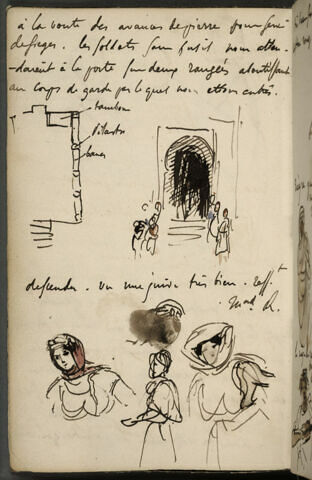 à la voute des avances de pierre pour servir
de sieges. les soldats sans fusil nous atten-
-daient à la porte sur deux rangées aboutissant
au corps de garde par lequel nous etions entrés.
tambour
pilastre
bancs
descendu. vu une juive très bien.